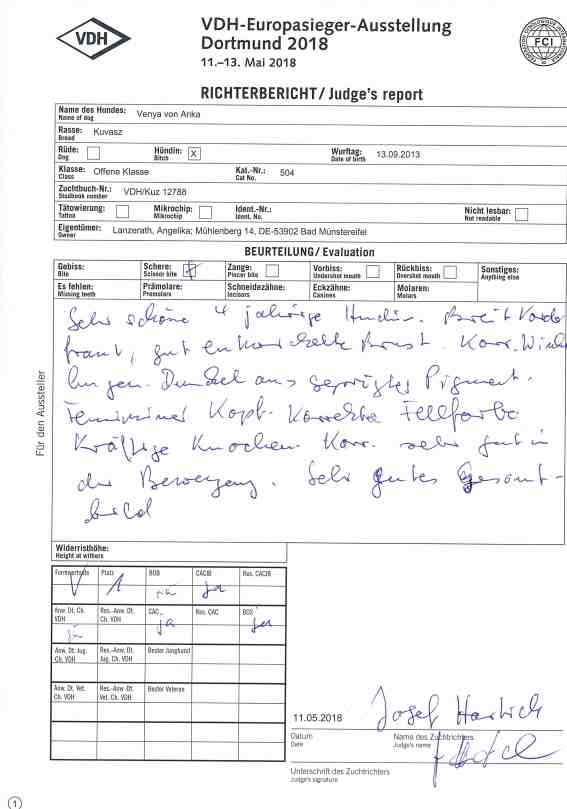 VDH
VDH-Europasieger-Ausstellung
Dortmund 2018
11.–13. Mai 2018
FCI
RICHTERBERICHT / Judge's report
Name des Hundes: Venya von Arika
Name of dog
Rasse: Kuvasz
Breed
Rüde: Hündin: X Wurftag: 13.09.2013
Dog Bitch Date of birth
Klasse: Offene Klasse Kat.-Nr.: 504
Class Cat No.
Zuchtbuch-Nr.: VDH/Kuz 12788
Studbook number
Tätowierung: Mikrochip: Ident.-Nr.: Nicht lesbar:
Tattoo Microchip Ident. No. Not readable
Eigentümer: Lanzerath, Angelika; Mühlenberg 14, DE-53902 Bad Münstereifel
Owner
BEURTEILUNG / Evaluation
Gebiss: Schere: Zange: Vorbiss: Rückbiss: Sonstiges:
Bite Scissor bite Pincer bite Undershot mouth Overshot mouth Anything else
Es fehlen: Prämolare: Schneidezähne: Eckzähne: Molaren:
Missing teeth Premolars Incisors Canines Molars
Für den Aussteller
Sehr schöne 4 jährige Hündin. Breit Vorder
front, gut entwickelte Brust. Korr. Winke
lungen. Dunkel ausgeprägtes Pigment.
Femininer Kopf. Korrekte Fellfarbe
Kräftige Knochen. Korr. sehr gut in
der Bewegung. Sehr gutes Gesamt-
bild
Widerristhöhe:
Height at withers
Formwertnote Platz BOB CACIB Res. CACIB
V 1 ja
Anw. Dt. Ch. VDH Res.-Anw. Dt. Ch. VDH CAC Res. CAC BOS
ja ja
Anw. Dt. Jug. Ch. VDH Res.-Anw. Dt. Jug. Ch. VDH Bester Junghund
Anw. Dt. Vet. Ch. VDH Res.-Anw. Dt. Vet. Ch. VDH Bester Veteran
11.05.2018 Josef
Datum Name des Zuchtrichters
Date Judge's name
Unterschrift des Zuchtrichters
Judge's signature
1